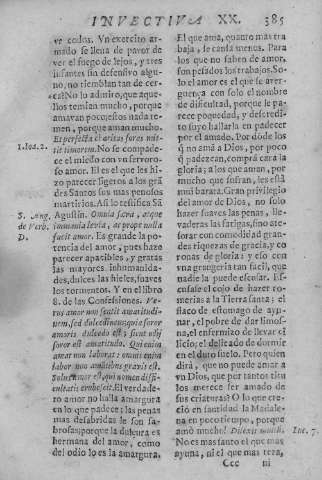 INVECTIVA XX. 385
ve todos. Vn exercito ar-
mado se llena de pavor de
ver el fuego de lejos, y tres
infantes sin defensivo algu-
no, no tiemblan tan de cer-
ca! No lo admiro, que aque-
llos temian mucho, porque
amavan poco; estos nada te-
men, porque aman mucho.
Et perfecta charitas foras mit-
1. Ioa. 2. tit timorem. No se compade-
ce el miedo con vn fervoro-
so amor. El es el que les hi-
zo parecer ligeros a los grã
des Santos sus mas penosos
martirios. Assi lo testifica Sã
S. Aug. Agustin. Omnia sæva, atque
de Verb. immania levia, & prope nulla
D. facit amor. Es grande la po-
tencia del amor, pues haze
parecer apacibles, y gratas
las mayores inhumanida-
des, dulces las hieles, suaves
los tormentos. Y en el libro
8. de las Confessiones. Ve-
rus amor non sentit amaritudi-
nem, sed dulcedinem, quia soror
amoris dulcedo est; sicut odij
soror est amaritudo. Qui enim
amat non laborat: omnis enim
labor non amãtibus gravis est.
Solus amor est, qui nomen diffi-
cultatis erubescit. El verdade-
ro amor no halla amargura
en lo que padece; las penas
mas desabridas le son sa-
brosas, porque la dulçura es
hermana del amor, como
del odio lo es la amargura.
El que ama, quanto mas tra
baja, le cansa menos. Para
los que no saben de amor,
son pesados los trabajos. So-
lo el amor es el que se aver-
guença con solo el nombre
de dificultad, porque le pa-
rece poquedad, y descredi-
to suyo hallarla en padecer
por el amado. Por dõde los
q̃ no amã a Dios, por poco
q̃ padezcan, compră cara la
gloria; a los que aman, por
mucho que sufran, les està
mui barata. Gran privilegio
del amor de Dios, no solo
hazer suaves las penas, lle-
vaderas las fatigas, sino atè
sorar con comodidad gran-
des riquezas de gracia, y co
ronas de gloria; y eso con
vna grangeria tan facil, que
nadie la puede escusar. Es-
cusase el cojo de hazer ro-
merias a la Tierra santa; el
flaco de estomago de ayu-
nar, el pobre de dar limos-
na, el enfermizo de llevar ci
licio; el delicado de dormir
en el duro suelo. Pero quien
dirà, que no puede amar a
vn Dios, que por tantos titu
los merece ser amado de
sus criaturas? O lo que cre-
ciò en santidad la Madale-
na en poco tiempo, porque
amò mucho! Dilexit multũ. Luc. 7.
No es mas santo el que mas
ayuna, ni el que mas reza,
Ccc iij